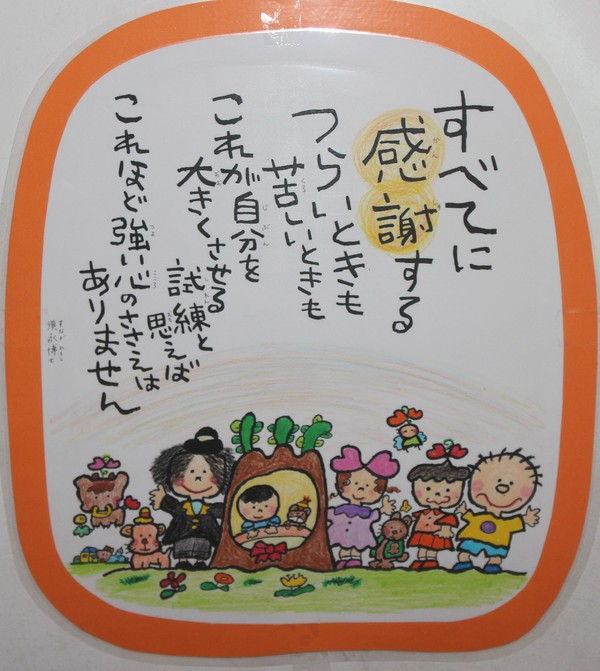 すべてに
感謝する
つらいときも
苦しいときも
これが自分を
大きくさせる
試練と
思えば
これほど強い心のささえは
ありません
須永博士